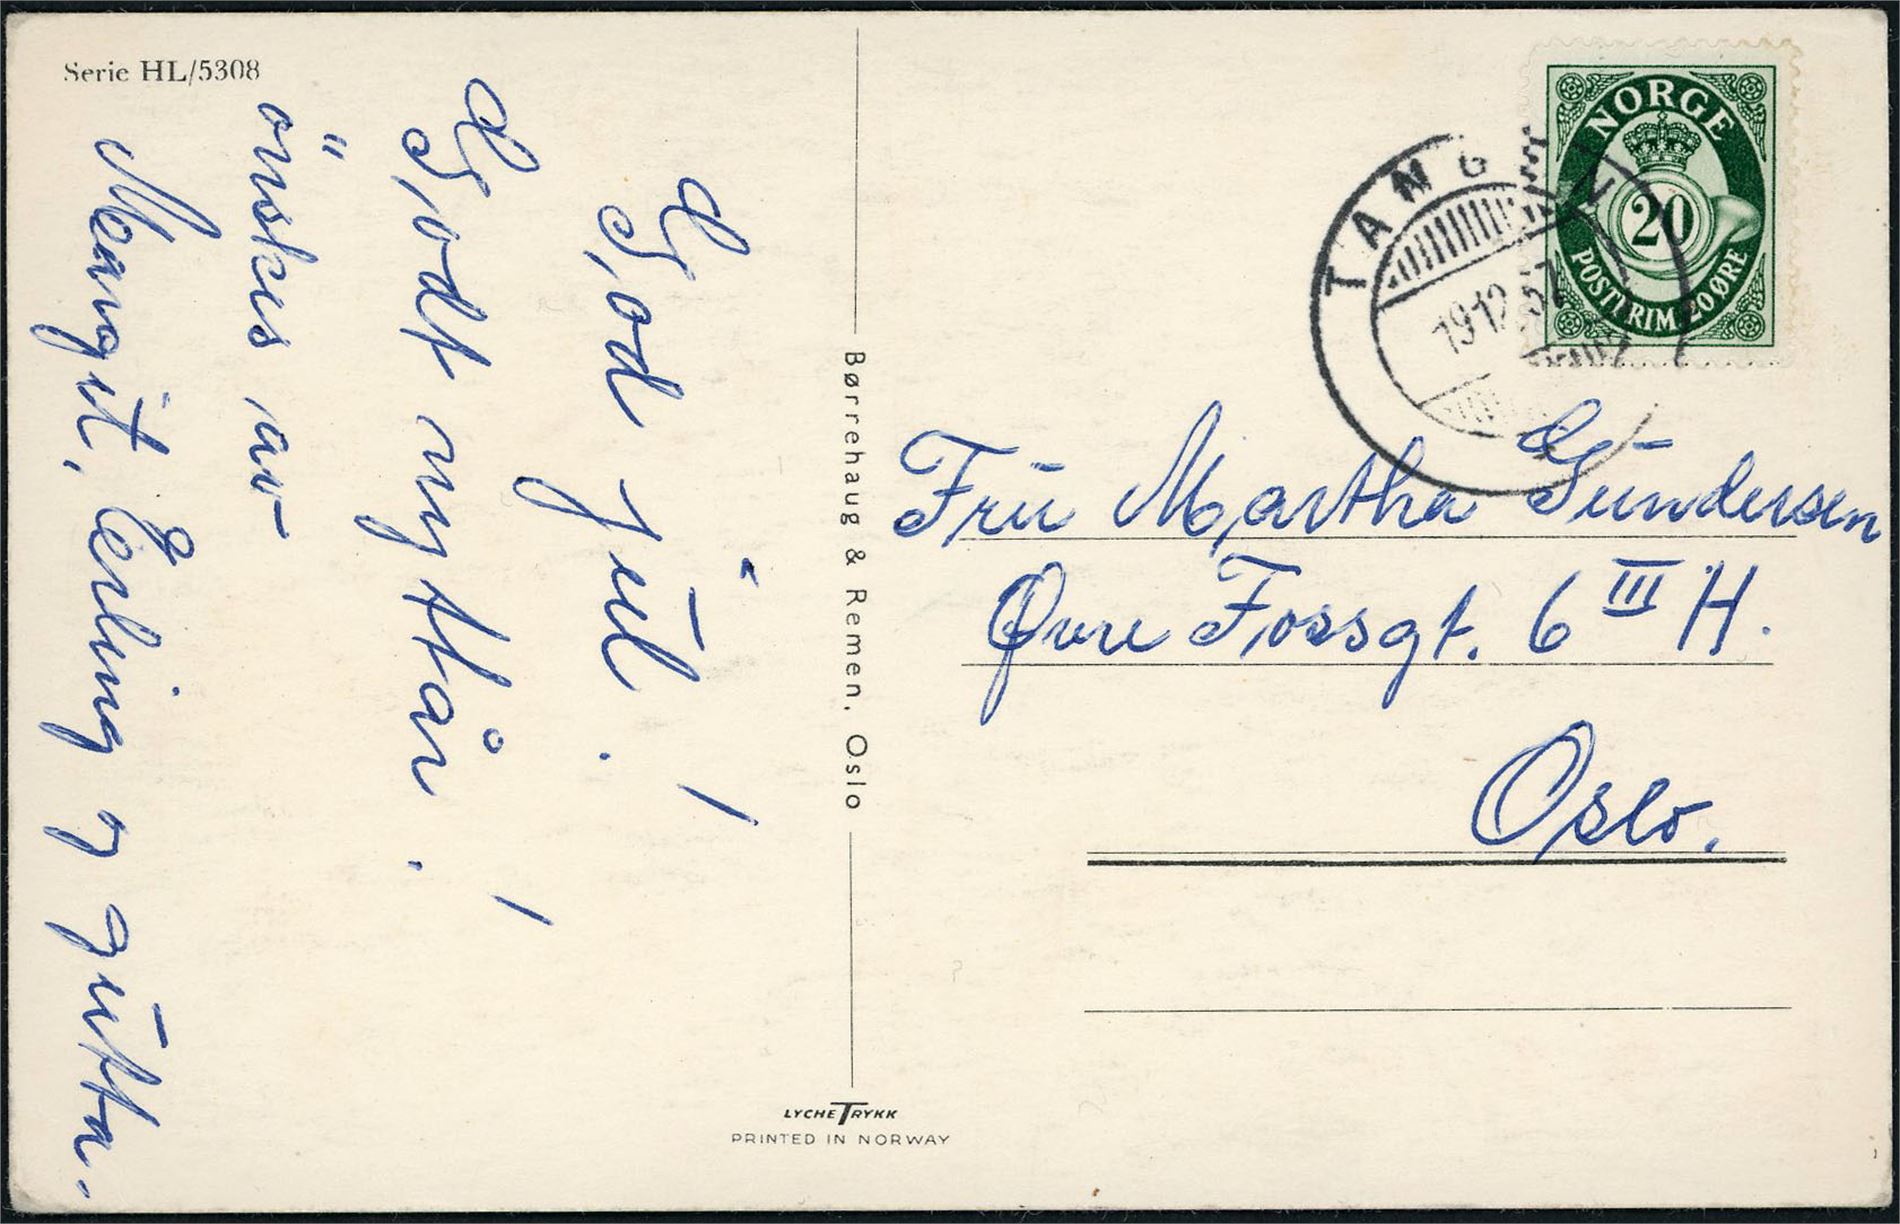 Serie HL/5308
God jul!
Godt nyttår!
önskes av
Margit, Erling og gutta.
Børrehaug & Remen, Oslo
LYCHE TRYKK
PRINTED IN NORWAY
NORGE
20
POSTFRIM. 20 ØRE
19 12 57
Fru Martha Gundersen
Øvre Fossgt. 6 III H.
Oslo.